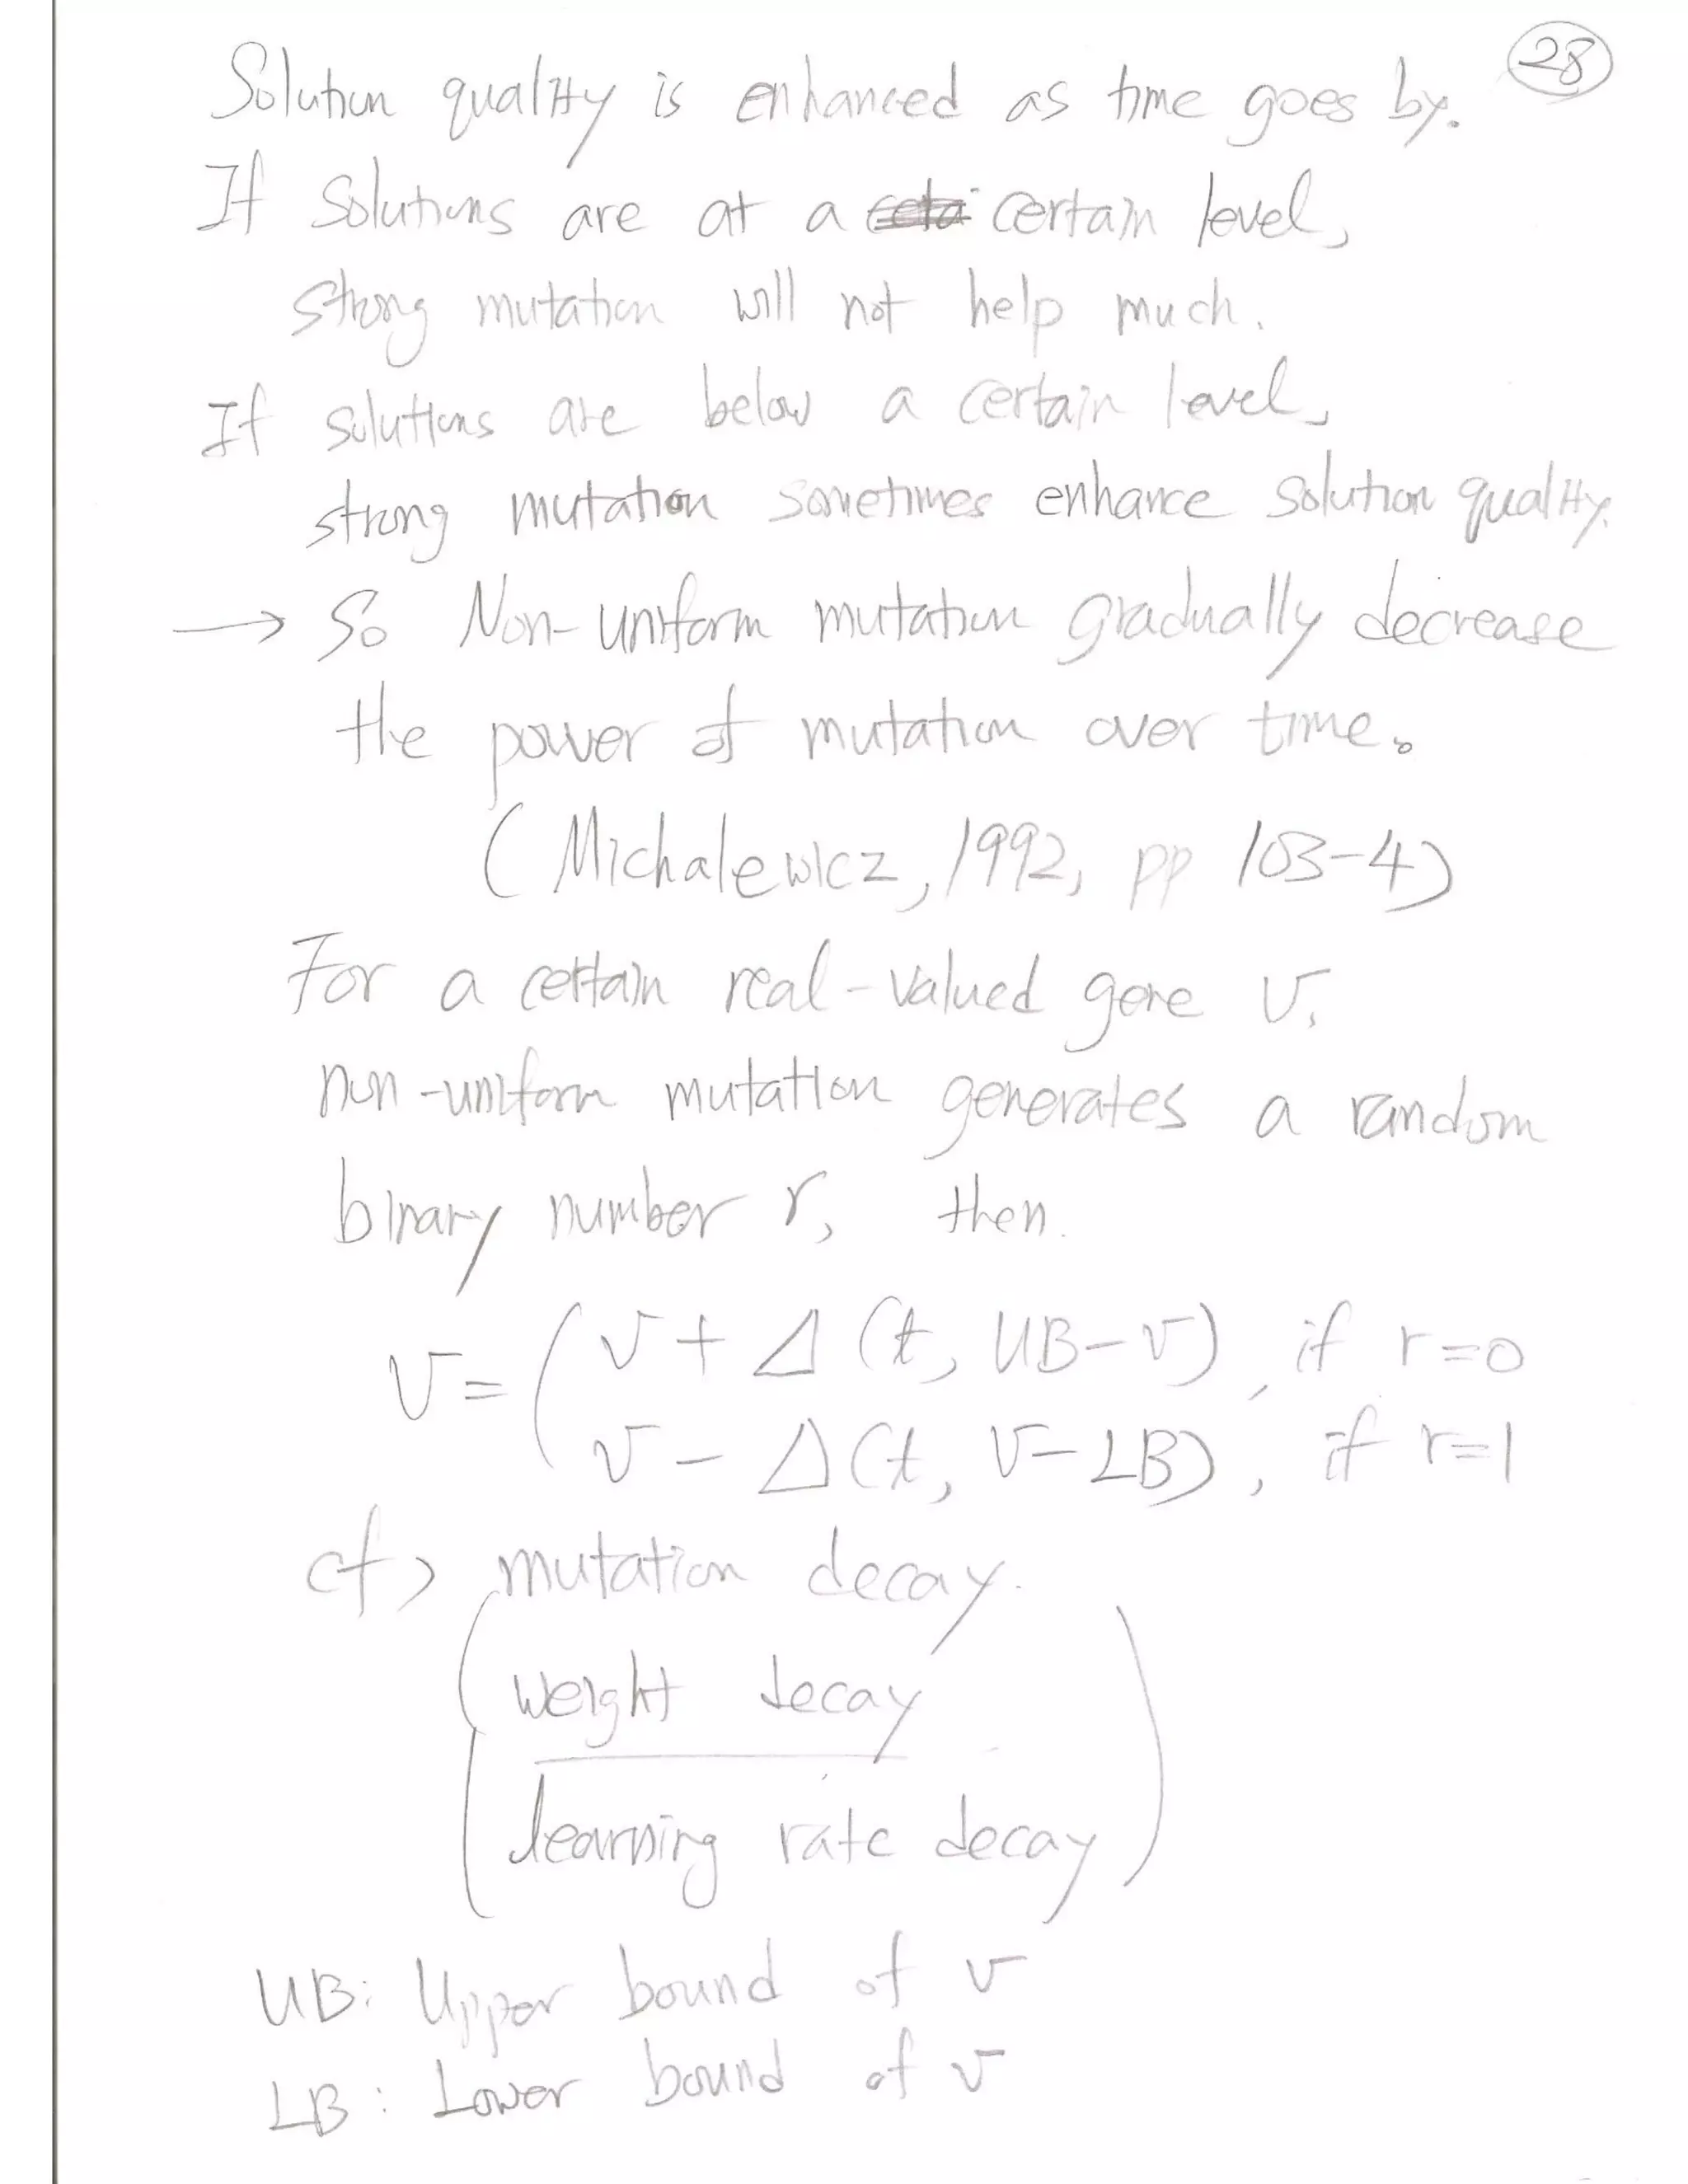 28
Solution quality is enhanced as time goes by.
If solutions are at a certain level,
strong mutation will not help much.
If solutions are below a certain level,
strong mutation sometimes enhance solution quality.
→ So Non-uniform mutation gradually decrease
the power of mutation over time.
(Michalewicz, 1992, pp 103-4)
For a certain real-valued gene v,
non-uniform mutation generates a random
binary number r, then.
v = ( v + Δ (t, UB-v), if r=0
v - Δ(t, v-LB), if r=1
cf> mutation decay.
( weight decay
learning rate decay )
UB: Upper bound of v
LB: Lower bound of v